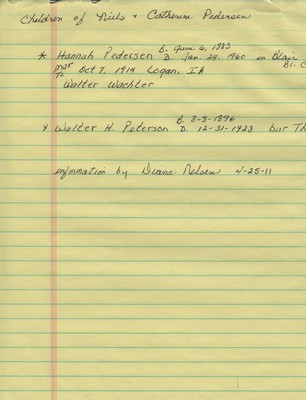 Children of Niels & Catherine Pedersen
B. June 6, 1883
* Hannah Pedersen D. Jan. 29, 1960 in Blair
mar Oct 7, 1914 Logan, IA Bl. C
To Walter Wachter
B. 8-8-1896
x Walter H. Peterson D. 12-31-1923 bur Th
information by Nelsen 4-25-11